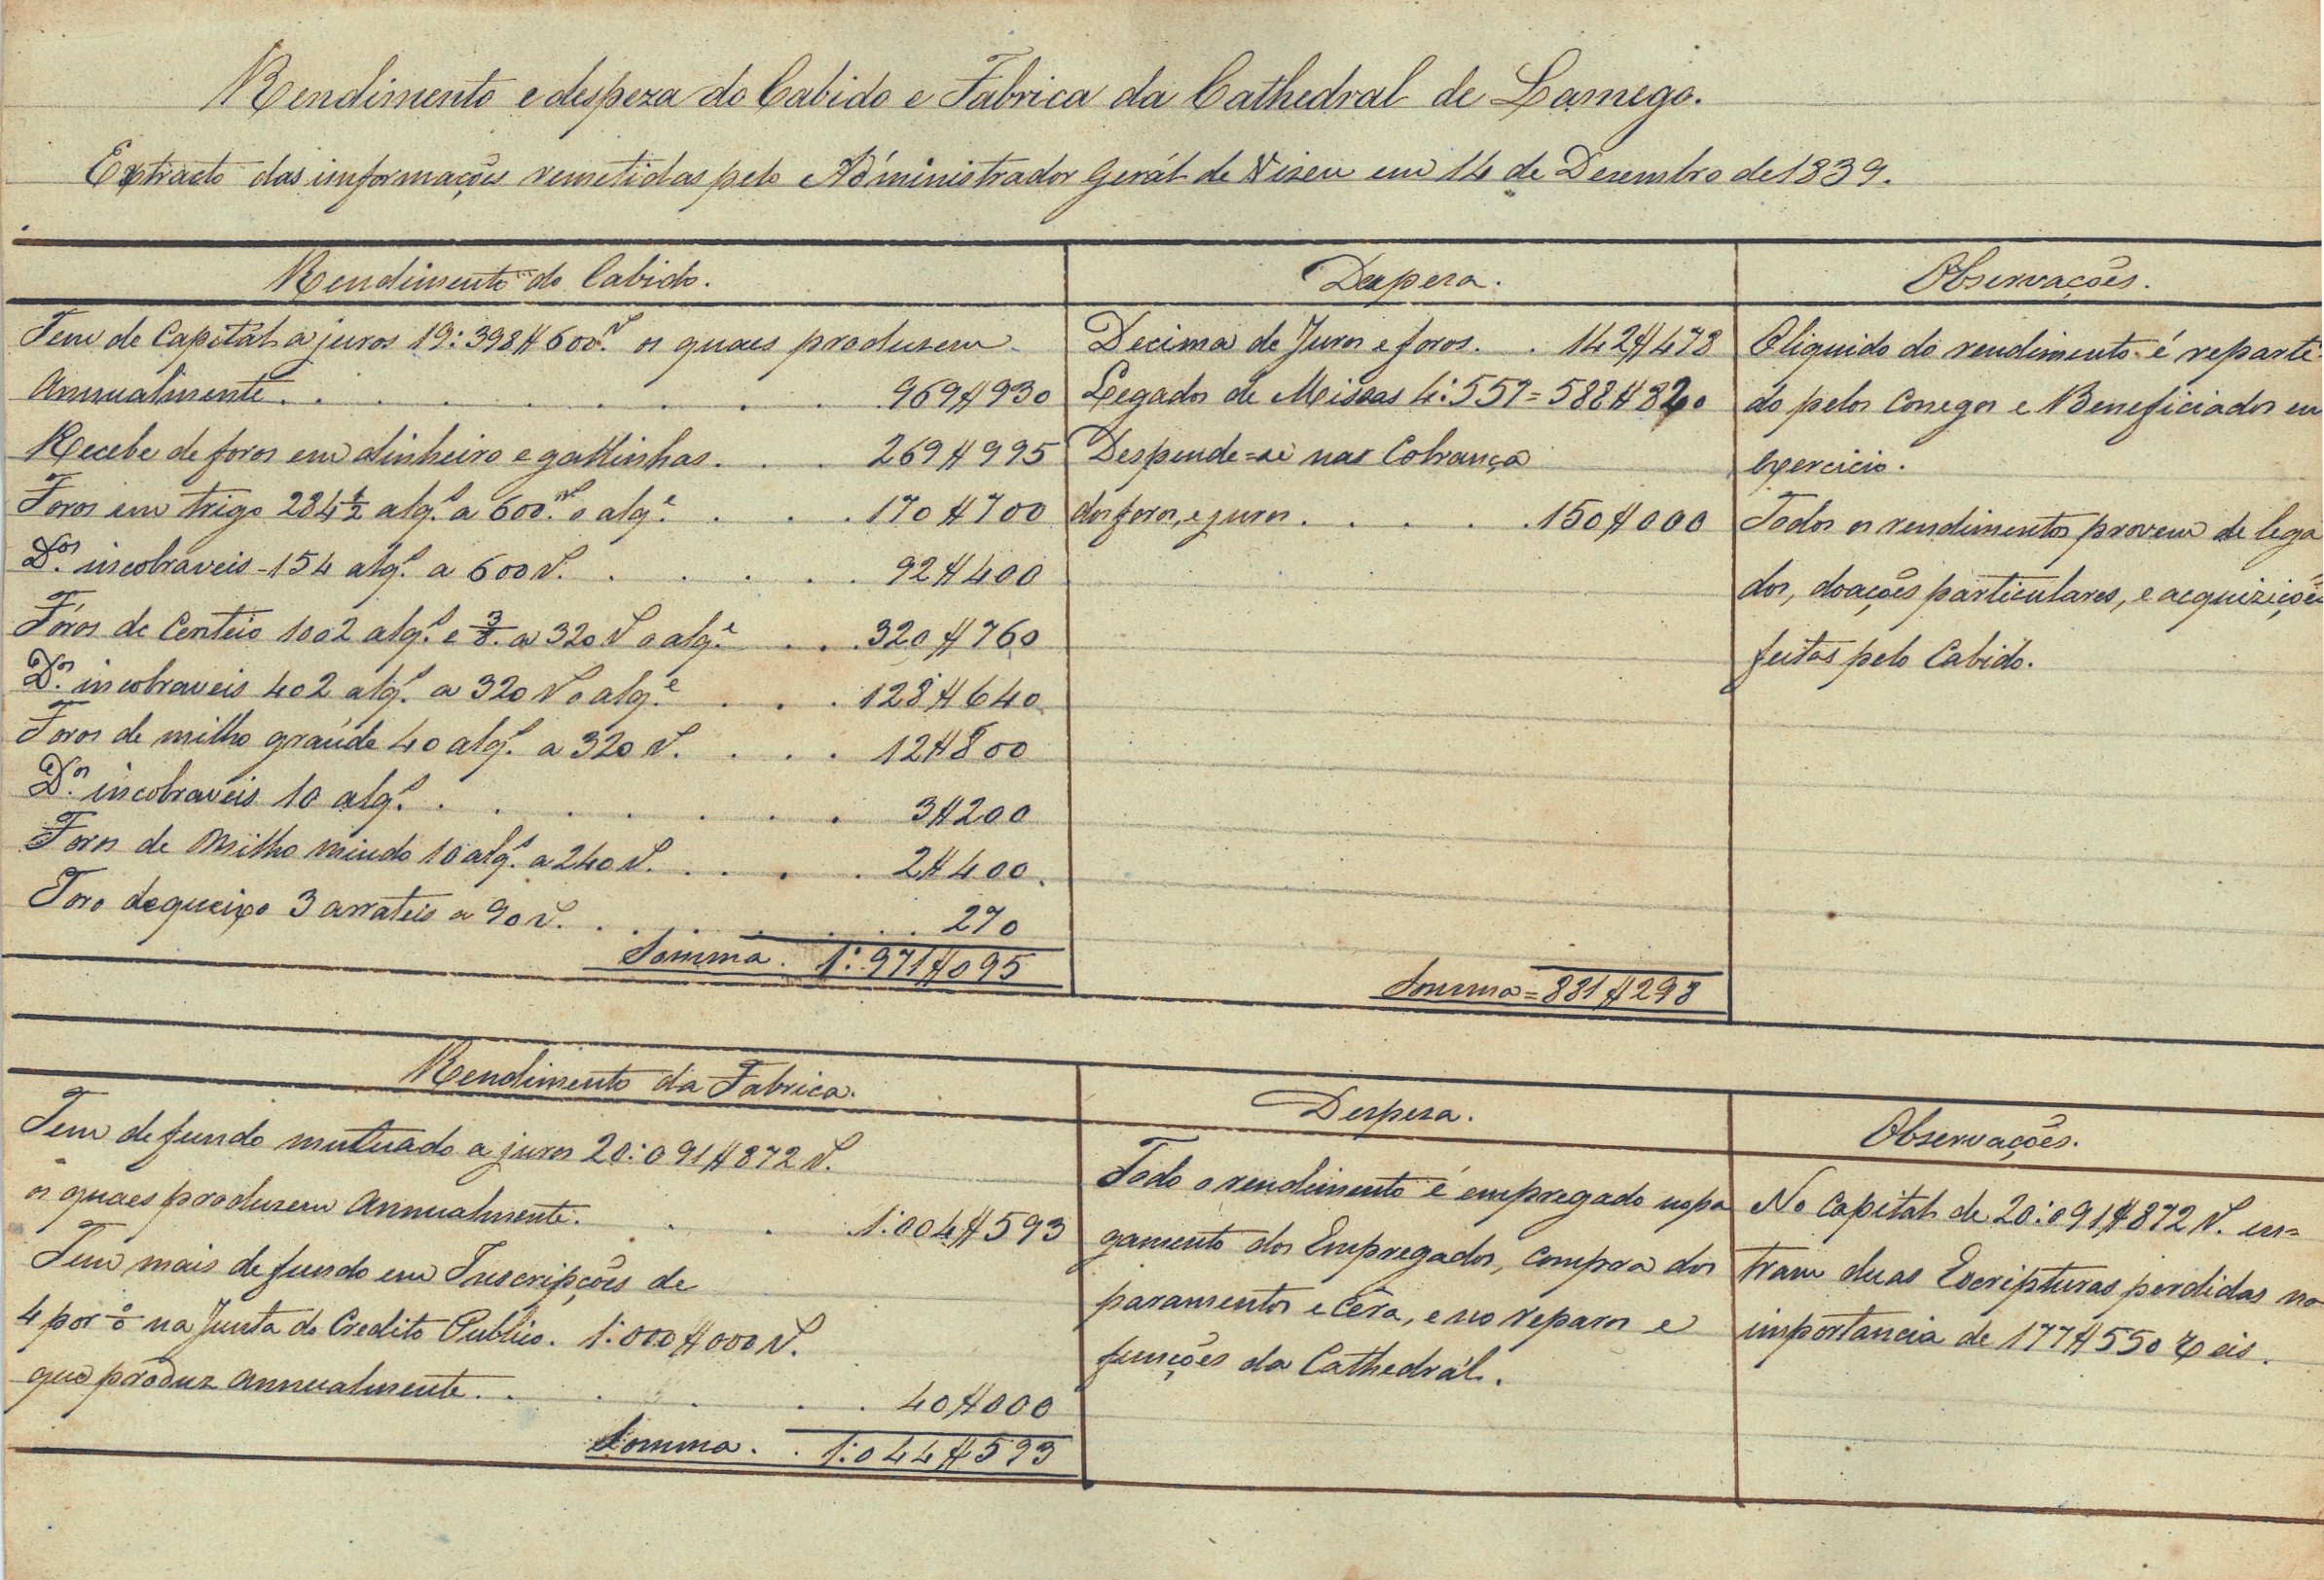 Rendimento e despeza do Cabido e Fabrica da Cathedral de Lamego.
Extracto das informações remetidas pelo Administrador Gerál de Viseu em 14 de Dezembro de 1839.
Rendimento do Cabido.
Tem de Capitál a juros 19:398$600 rs. os quaes produzem
Annualmente. . . . . . . . 969$930
Recebe de foros em dinheiro e gallinhas. . . 269$995
Foros em trigo 284 1/2 alqs. a 600 rs. o alqe. . . . 170$700
Dos. incobraveis - 154 alqs. a 600 rs. . . . . . 92$400
Fóros de Centeio 1002 alqs. e 3/8. a 320 rs o alqe. . . . 320$760
Dos. incobraveis 402 alqs. a 320 rs o alqe. . . . 128$640
Foros de milho graúde 40 alqs. a 320 rs. . . . 12$800
Dos. incobraveis 10 alqs. . . . . . . . 3$200
Foros de Milho miudo 10 alqs. a 240 rs. . . . . 2$400.
Foro de queixo 3 arrateis a 90 rs. . . . . . . 270
Somma. 1:971$095
Despeza.
Decima de Juros e foros. . 142$478
Legados de Missas 4:557=588$820
Despende=se nas Cobrança
dos foros, e juros. . . . . . 150$000
Somma=881$298
Observações.
O liquido do rendimento é reparti
do pelos Conegos e Beneficiados em
exercicio.
Todos os rendimentos provem de lega
dos, doações particulares, e acquizições
feitas pelo Cabido.
Rendimento da Fabrica.
Tem de fundo mutuado a juros 20:091$872 rs.
os quaes produzem Annualmente. . . . 1:004$593
Tem mais de fundo em Inscripções de
4 por % na Junta do Credito Publico. 1:000$000 rs.
que produz annualmente. . . . . . 40$000
Somma. . 1:044$593
Despeza.
Todo o rendimento é empregado no pa
gamento dos Empregados, compra dos
paramentos e Cêra, e no reparos e
funcções da Cathedrál.
Observações.
No Capitál de 20:091$872 rs. en=
tram duas Escripturas perdidas na
importancia de 177$550 Reis.